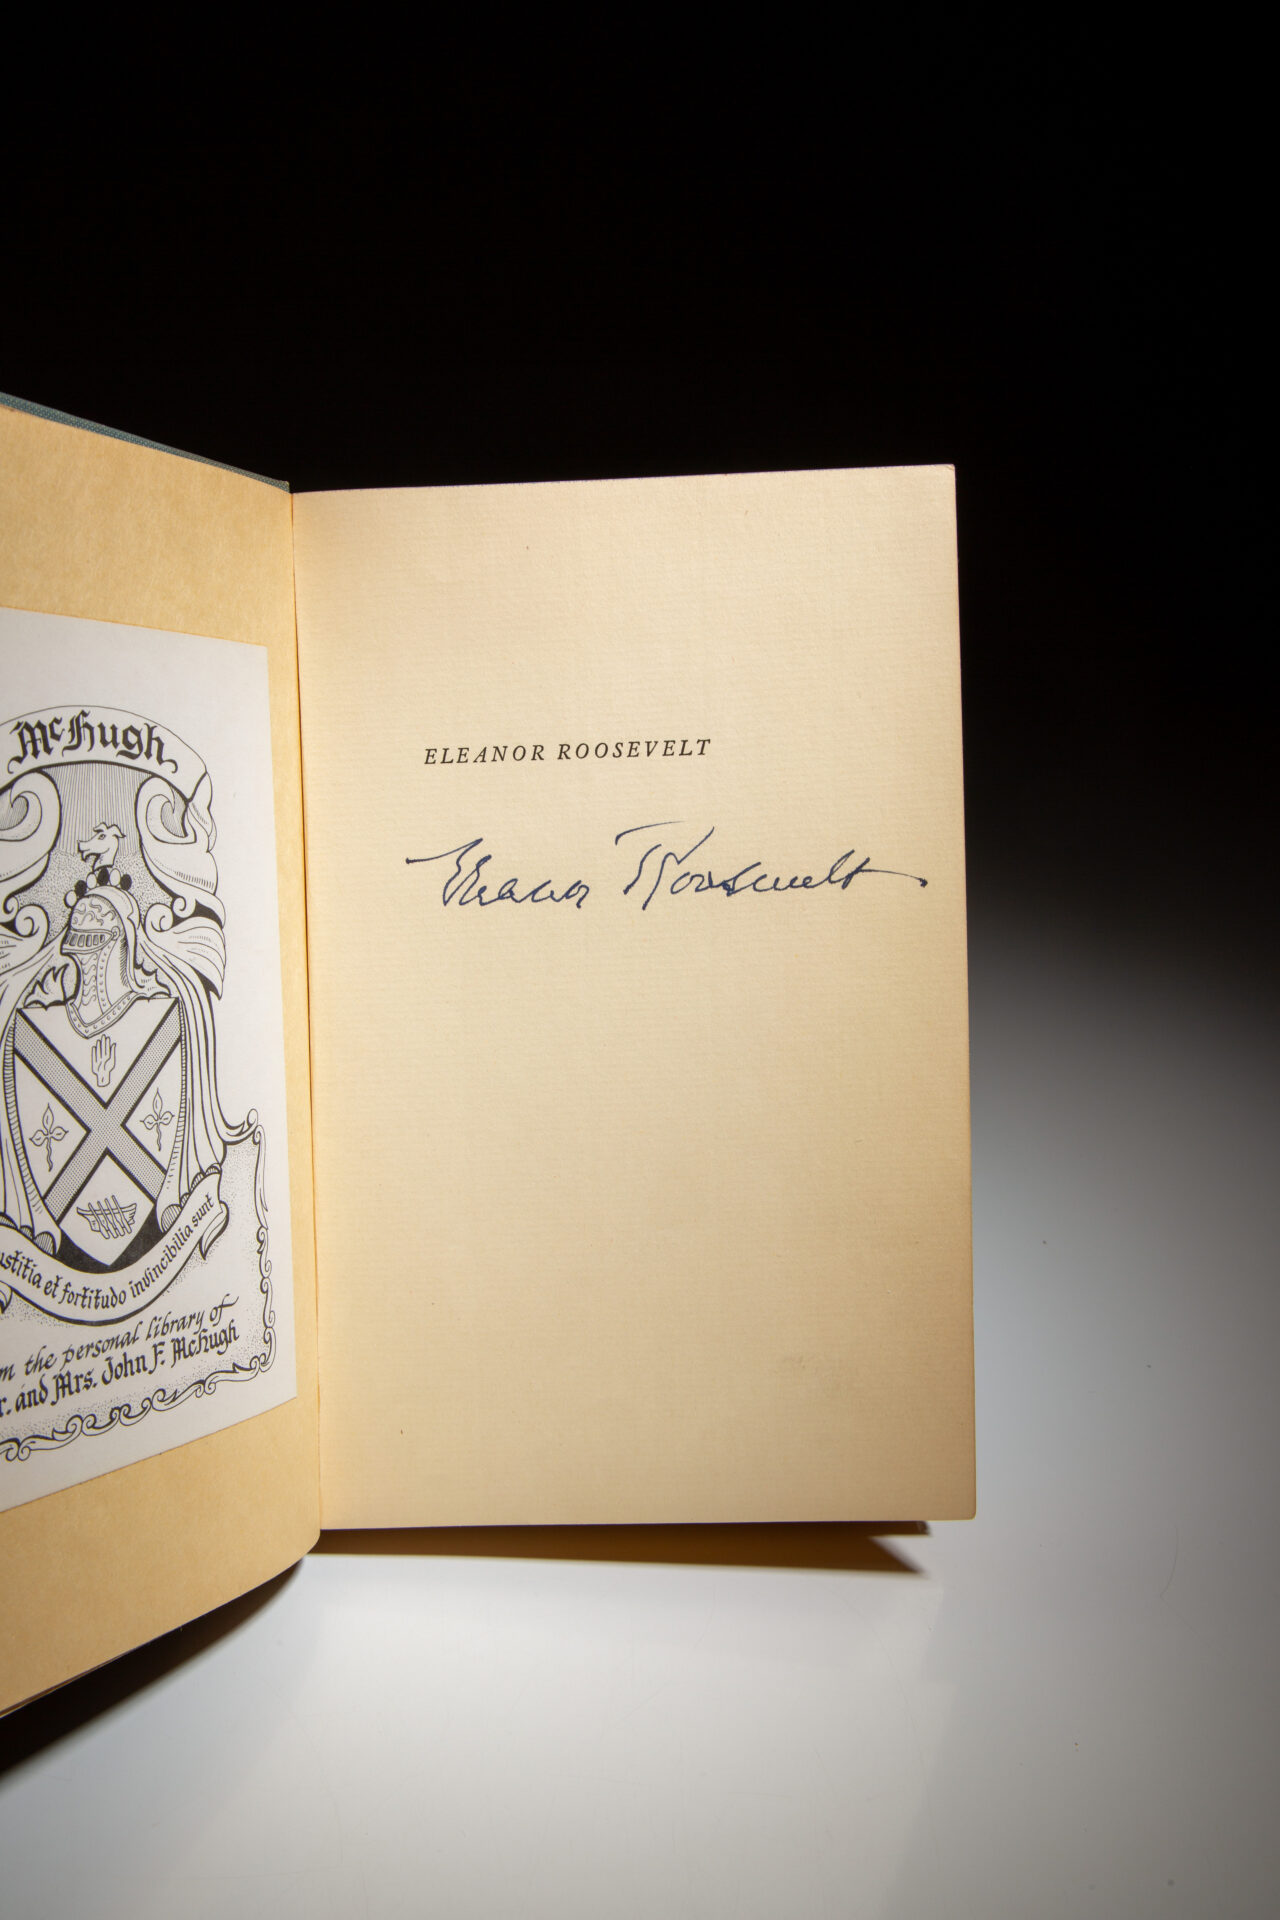 McHugh
ustitia et fortitudo invincibilia sunt
m the personal library of
r. and Mrs. John F. McHugh
ELEANOR ROOSEVELT
Eleanor Roosevelt